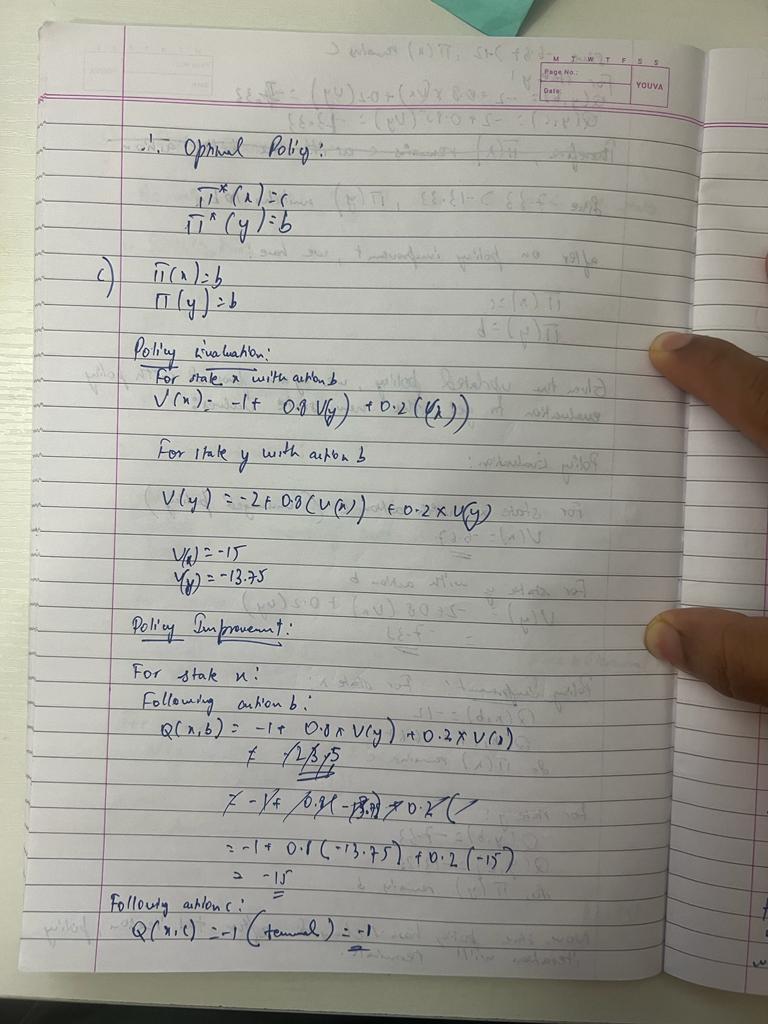 M T W T F S S
Page No.:
Date:
YOUVA
∴ Optimal Policy:
π*(x)=c
π*(y)=b
c) π(x)=b
π(y)=b
Policy Evaluation:
For state x with action b
V(x) = -1+ 0.8 V(y) + 0.2 (V(x))
For state y with action b
V(y) = -2+ 0.8(V(x)) + 0.2 × V(y)
V(x) = -15
V(y) = -13.75
Policy Improvement:
For state x:
Following action b:
Q(x,b) = -1+ 0.8 × V(y) + 0.2 × V(x)
= -1+ 0.8(-13.75) + 0.2 (-15)
= -15
Following action c:
Q(x,c) = -1 (terminal) = -1